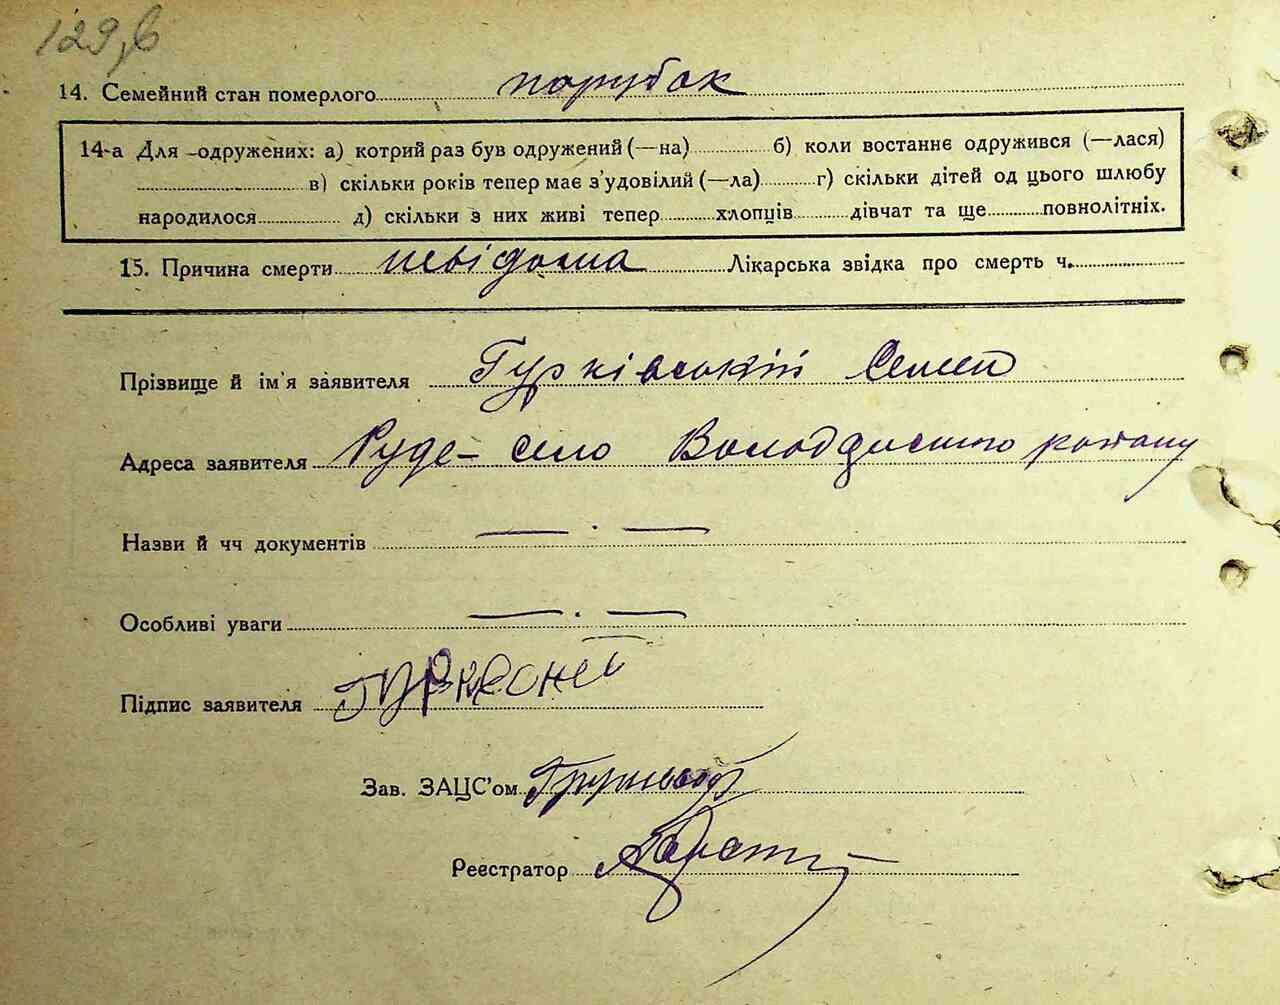 129,б
14. Семейний стан померлого парубок
14-а Для одружених: а) котрий раз був одружений (—на) б) коли востаннє одружився (—лася)
в) скільки років тепер має з'удовілий (—ла) г) скільки дітей од цього шлюбу
народилося д) скільки з них живі тепер хлопців дівчат та ще повнолітніх.
15. Причина смерти невідома Лікарська звідка про смерть ч.
Прізвище й ім'я заявителя Гурківський Семен
Адреса заявителя Руде-село Володарського району
Назви й чч документів — . —
Особливі уваги — . —
Підпис заявителя
Зав. ЗАЦС'ом
Реєстратор